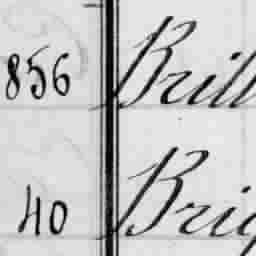 856 Brill
40 Brig